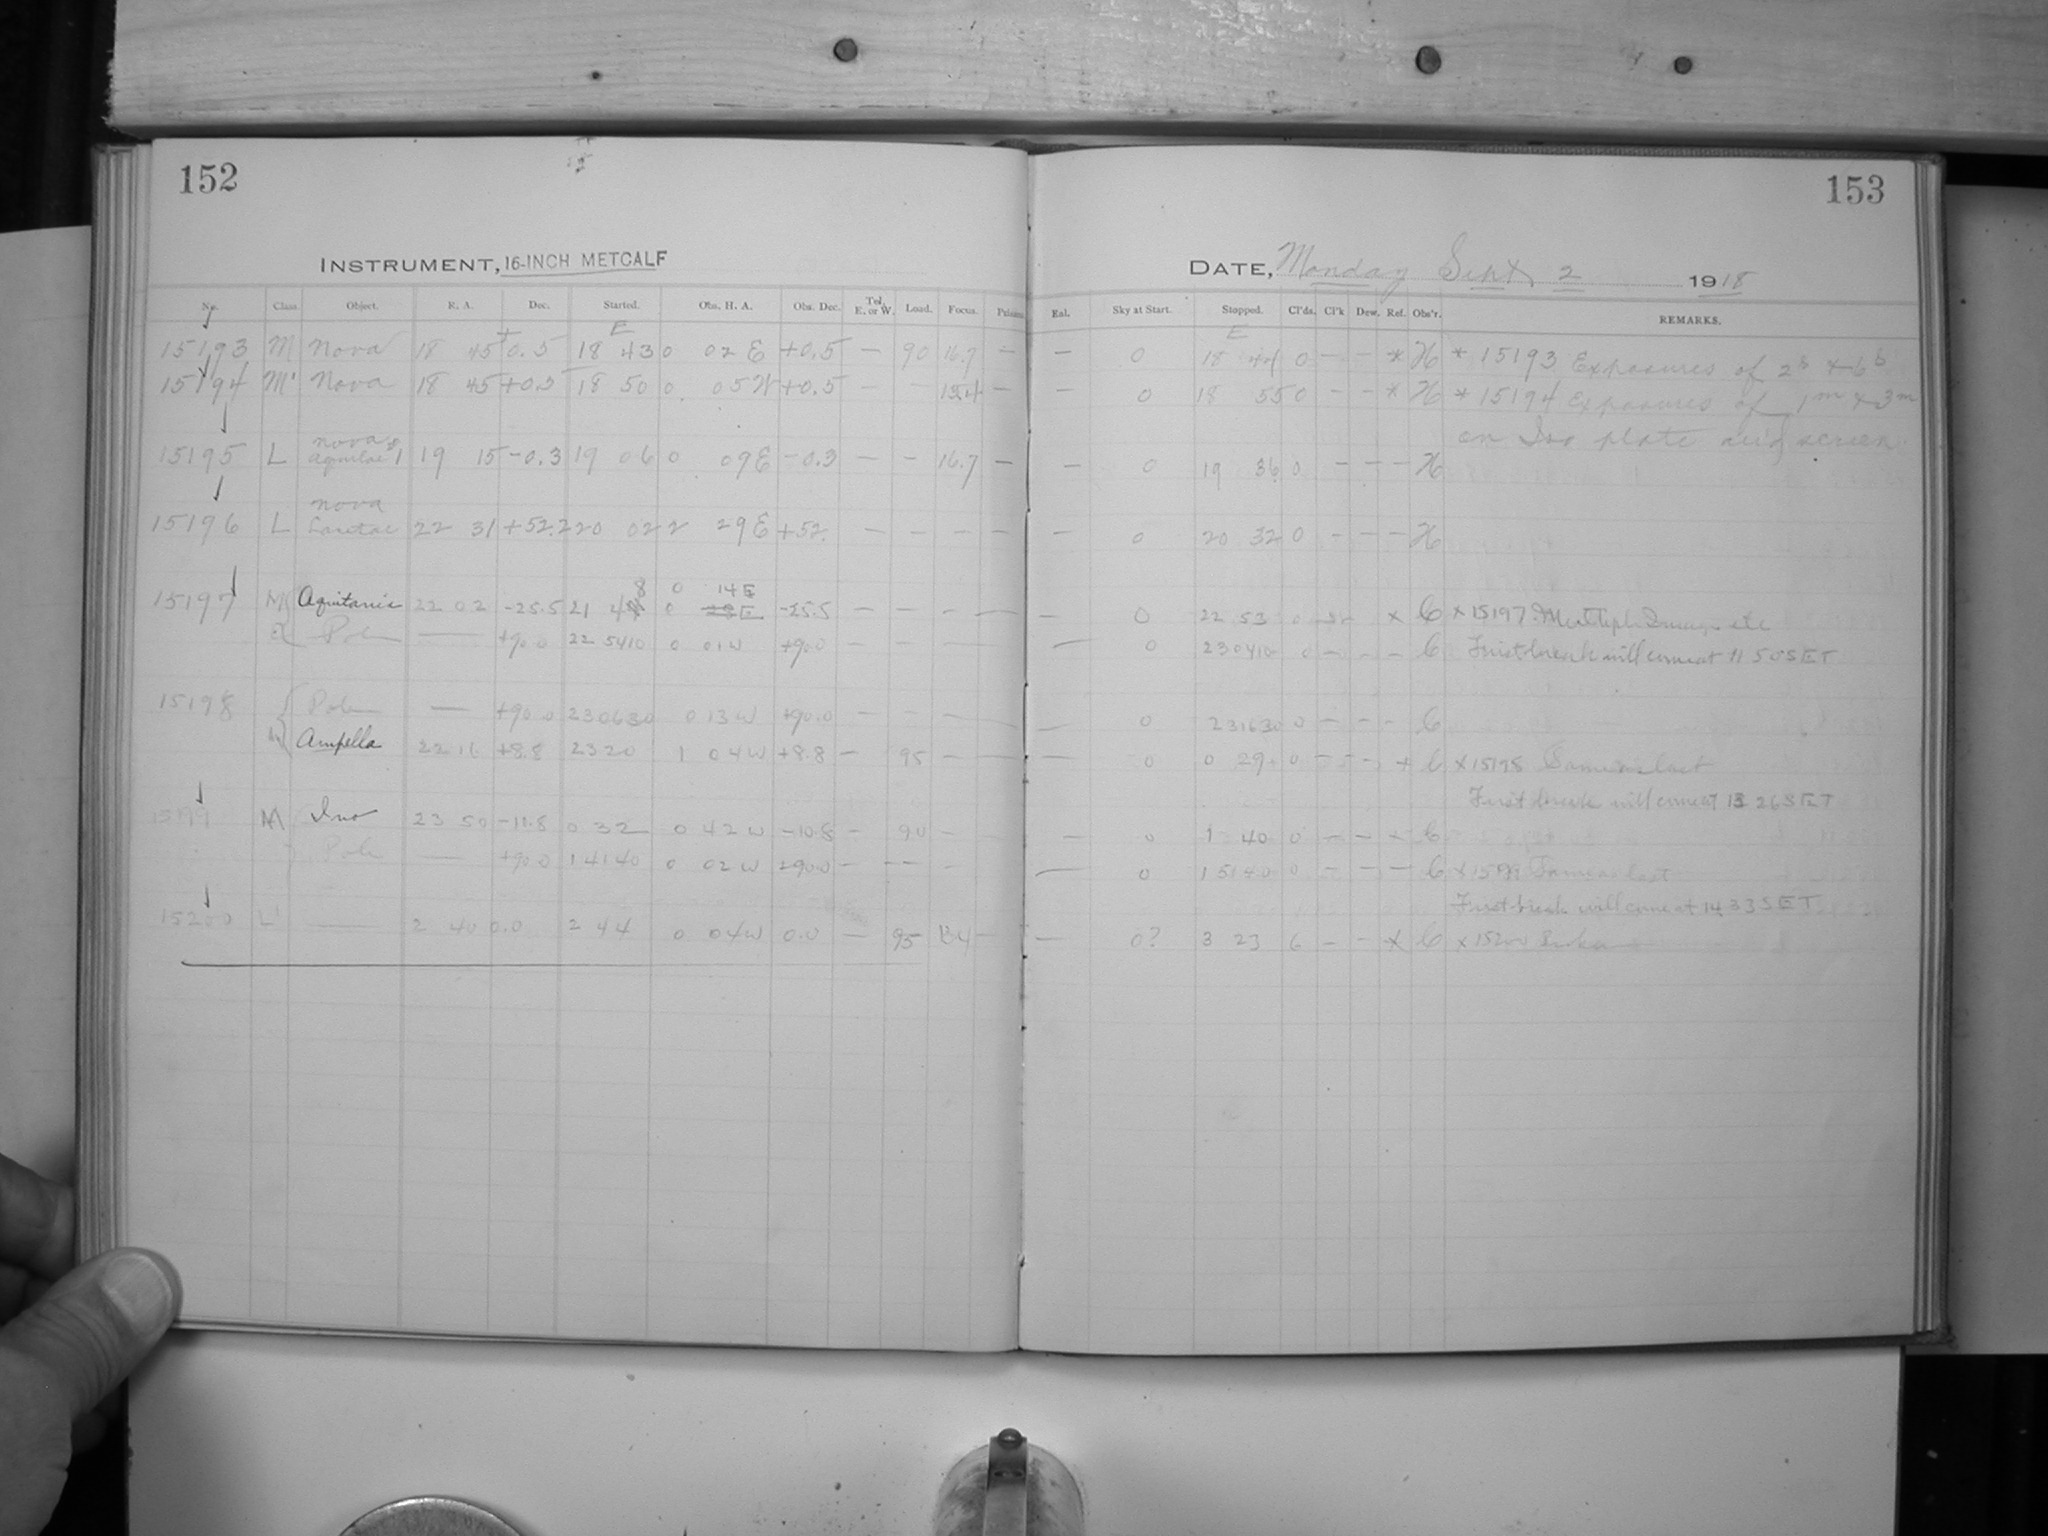 152
153
INSTRUMENT, 16-INCH METCALF
DATE, Monday Sept 2 1918
No. Class. Object. R. A. Dec. Started. Obs. H. A. Obs. Dec. Tel. E. or W. Load. Focus. Sky at Start. Stopped. Cl'ds. Cl'k Dew. Ref. Obs'r. REMARKS.
15193 M Nova 18 45 +0.5 18 43 0 02 E +0.5 — 90 16.7 — — 0 18 44 0 — — * H * 15193 Exposures of 2s & 6s
15194 M' Nova 18 45 +0.5 18 50 0 05 W +0.5 — — 13.4 — — 0 18 55 0 — — * H * 15194 Exposures of 1m & 3m
on Iso plate and screen
15195 L Nova Aquilae 19 15 -0.3 19 06 0 09 E -0.3 — — 16.7 — — 0 19 36 0 — — — H
15196 L Nova Lacertae 22 31 +52.2 20 02 2 29 E +52. — — — — — 0 20 32 0 — — — H
15197 M Aquitania 22 02 -25.5 21 48 0 14 E -25.5 — — — — — 0 22 53 0 x C x 15197 Multiple Image etc
Pole — +90.0 22 54 10 0 01 W +90.0 — — — — — 0 23 04 10 0 — — — C First break will come at 11 50 SET
15198 Pole — +90.0 23 06 30 0 13 W +90.0 — — — — — 0 23 16 30 0 — — — C
Ampella 22 16 +8.8 23 20 1 04 W +8.8 — 95 — — — 0 0 29 0 — — — x C x 15198 Same as last
First break will come at 13 26 SET
15199 M Ino 23 50 -10.8 0 32 0 42 W -10.8 — 90 — — 0 1 40 0 — — x C
Pole — +90.0 1 41 40 0 02 W +90.0 — — — — — 0 1 51 40 0 — — — C x 15199 Same as last
First break will come at 14 33 SET
15200 L' — 2 40 0.0 2 44 0 04 W 0.0 — 95 13.4 — — 0? 3 23 6 — — x C x 15200 Broken